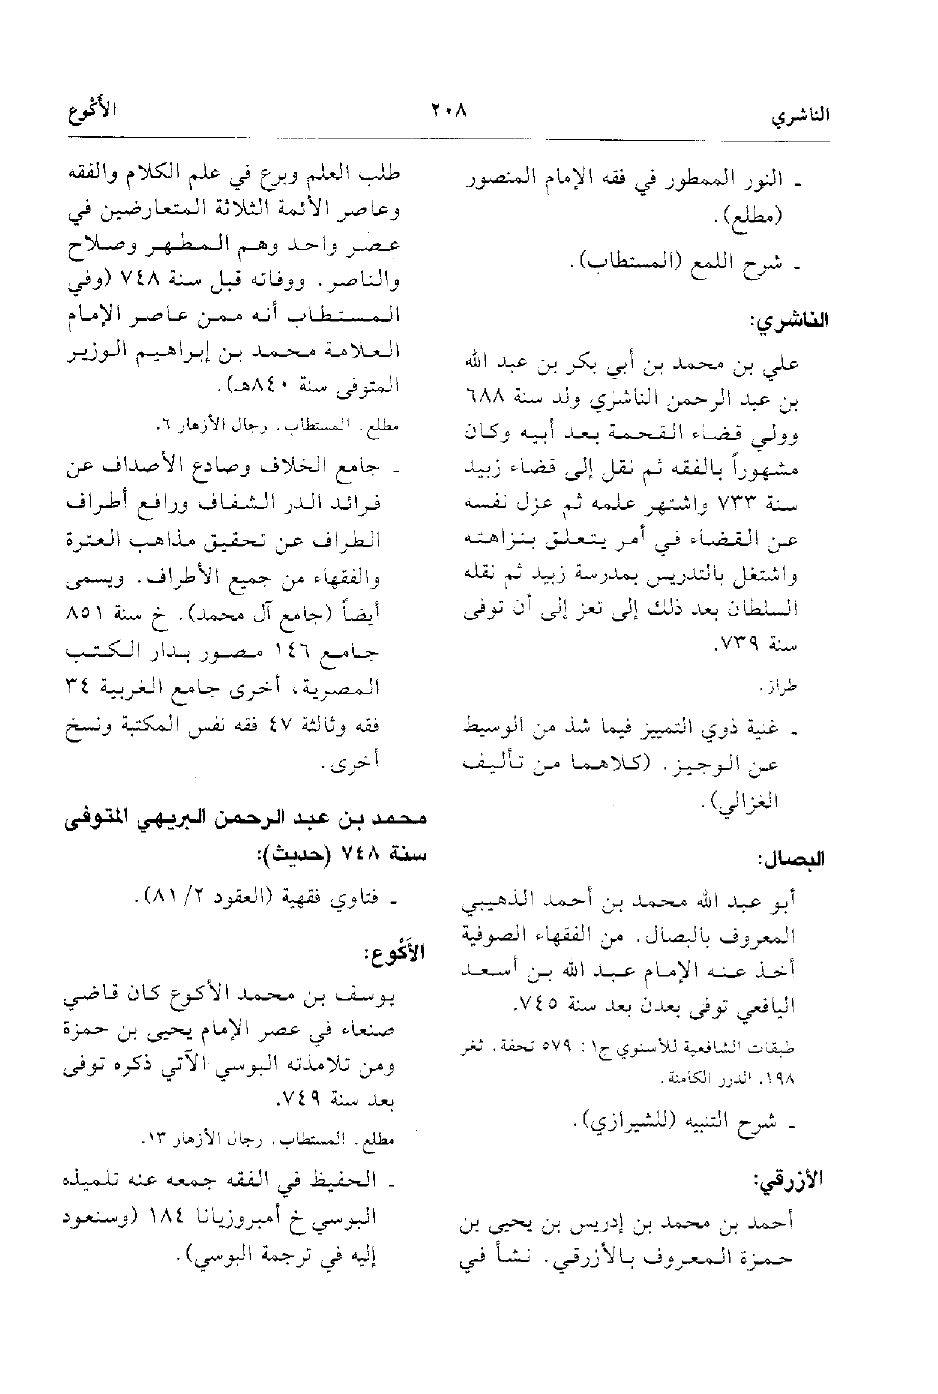 الناشري
٢٠٨
الأكْوع
ـ النور الممطور في فقه الإمام المنصور
(مطلع).
ـ شرح اللمع (المستطاب).
الناشري:
علي بن محمد بن أبي بكر بن عبد الله
بن عبد الرحمن الناشري ولد سنة ٦٨٨
وولي قضاء القحمة بعد أبيه وكان
مشهوراً بالفقه ثم نقل إلى قضاء زبيد
سنة ٧٣٣ واشتهر علمه ثم عزل نفسه
عن القضاء في أمر يتعلق بنزاهته
واشتغل بالتدريس بمدرسة زبيد ثم نقله
السلطان بعد ذلك إلى تعز إلى أن توفى
سنة ٧٣٩.
طراز.
ـ غنية ذوي التمييز فيما شذ من الوسيط
عن الوجيز. (كلاهما من تأليف
الغزالي).
البصال:
أبو عبد الله محمد بن أحمد الذهيبي
المعروف بالبصال. من الفقهاء الصوفية
أخذ عنه الإمام عبد الله بن أسعد
اليافعي توفى بعدن بعد سنة ٧٤٥.
طبقات الشافعية للأسنوي ج١: ٥٧٩ تحفة. ثغر
١٩٨. الدرر الكامنة.
ـ شرح التنبيه (للشيرازي).
الأزرقي:
أحمد بن محمد بن إدريس بن يحيى بن
حمزة المعروف بالأزرقي. نشأ في
طلب العلم وبرع في علم الكلام والفقه
وعاصر الأئمة الثلاثة المتعارضين في
عصر واحد وهم المطهر وصلاح
والناصر. ووفاته قبل سنة ٧٤٨ (وفي
المستطاب أنه ممن عاصر الإمام
العلامة محمد بن إبراهيم الوزير
المتوفى سنة ٨٤٠هـ).
مطلع. المستطاب. رجال الأزهار ٦.
ـ جامع الخلاف وصادع الأصداف عن
فرائد الدر الشفاف ورافع أطراف
الطراف عن تحقيق مذاهب العترة
والفقهاء من جميع الأطراف. ويسمى
أيضاً (جامع آل محمد). خ سنة ٨٥١
جامع ١٤٦ مصور بدار الكتب
المصرية، أخرى جامع الغربية ٣٤
فقه وثالثة ٤٧ فقه نفس المكتبة ونسخ
أخرى.
محمد بن عبد الرحمن البريهي المتوفى
سنة ٧٤٨ (حديث):
ـ فتاوي فقهية (العقود ٢/ ٨١).
الأكْوع:
يوسف بن محمد الأكوع كان قاضي
صنعاء في عصر الإمام يحيى بن حمزة
ومن تلامذته البوسي الآتي ذكره توفى
بعد سنة ٧٤٩.
مطلع. المستطاب. رجال الأزهار ١٣.
ـ الحفيظ في الفقه جمعه عنه تلميذه
البوسي خ أمبروزيانا ١٨٤ (وسنعود
إليه في ترجمة البوسي).